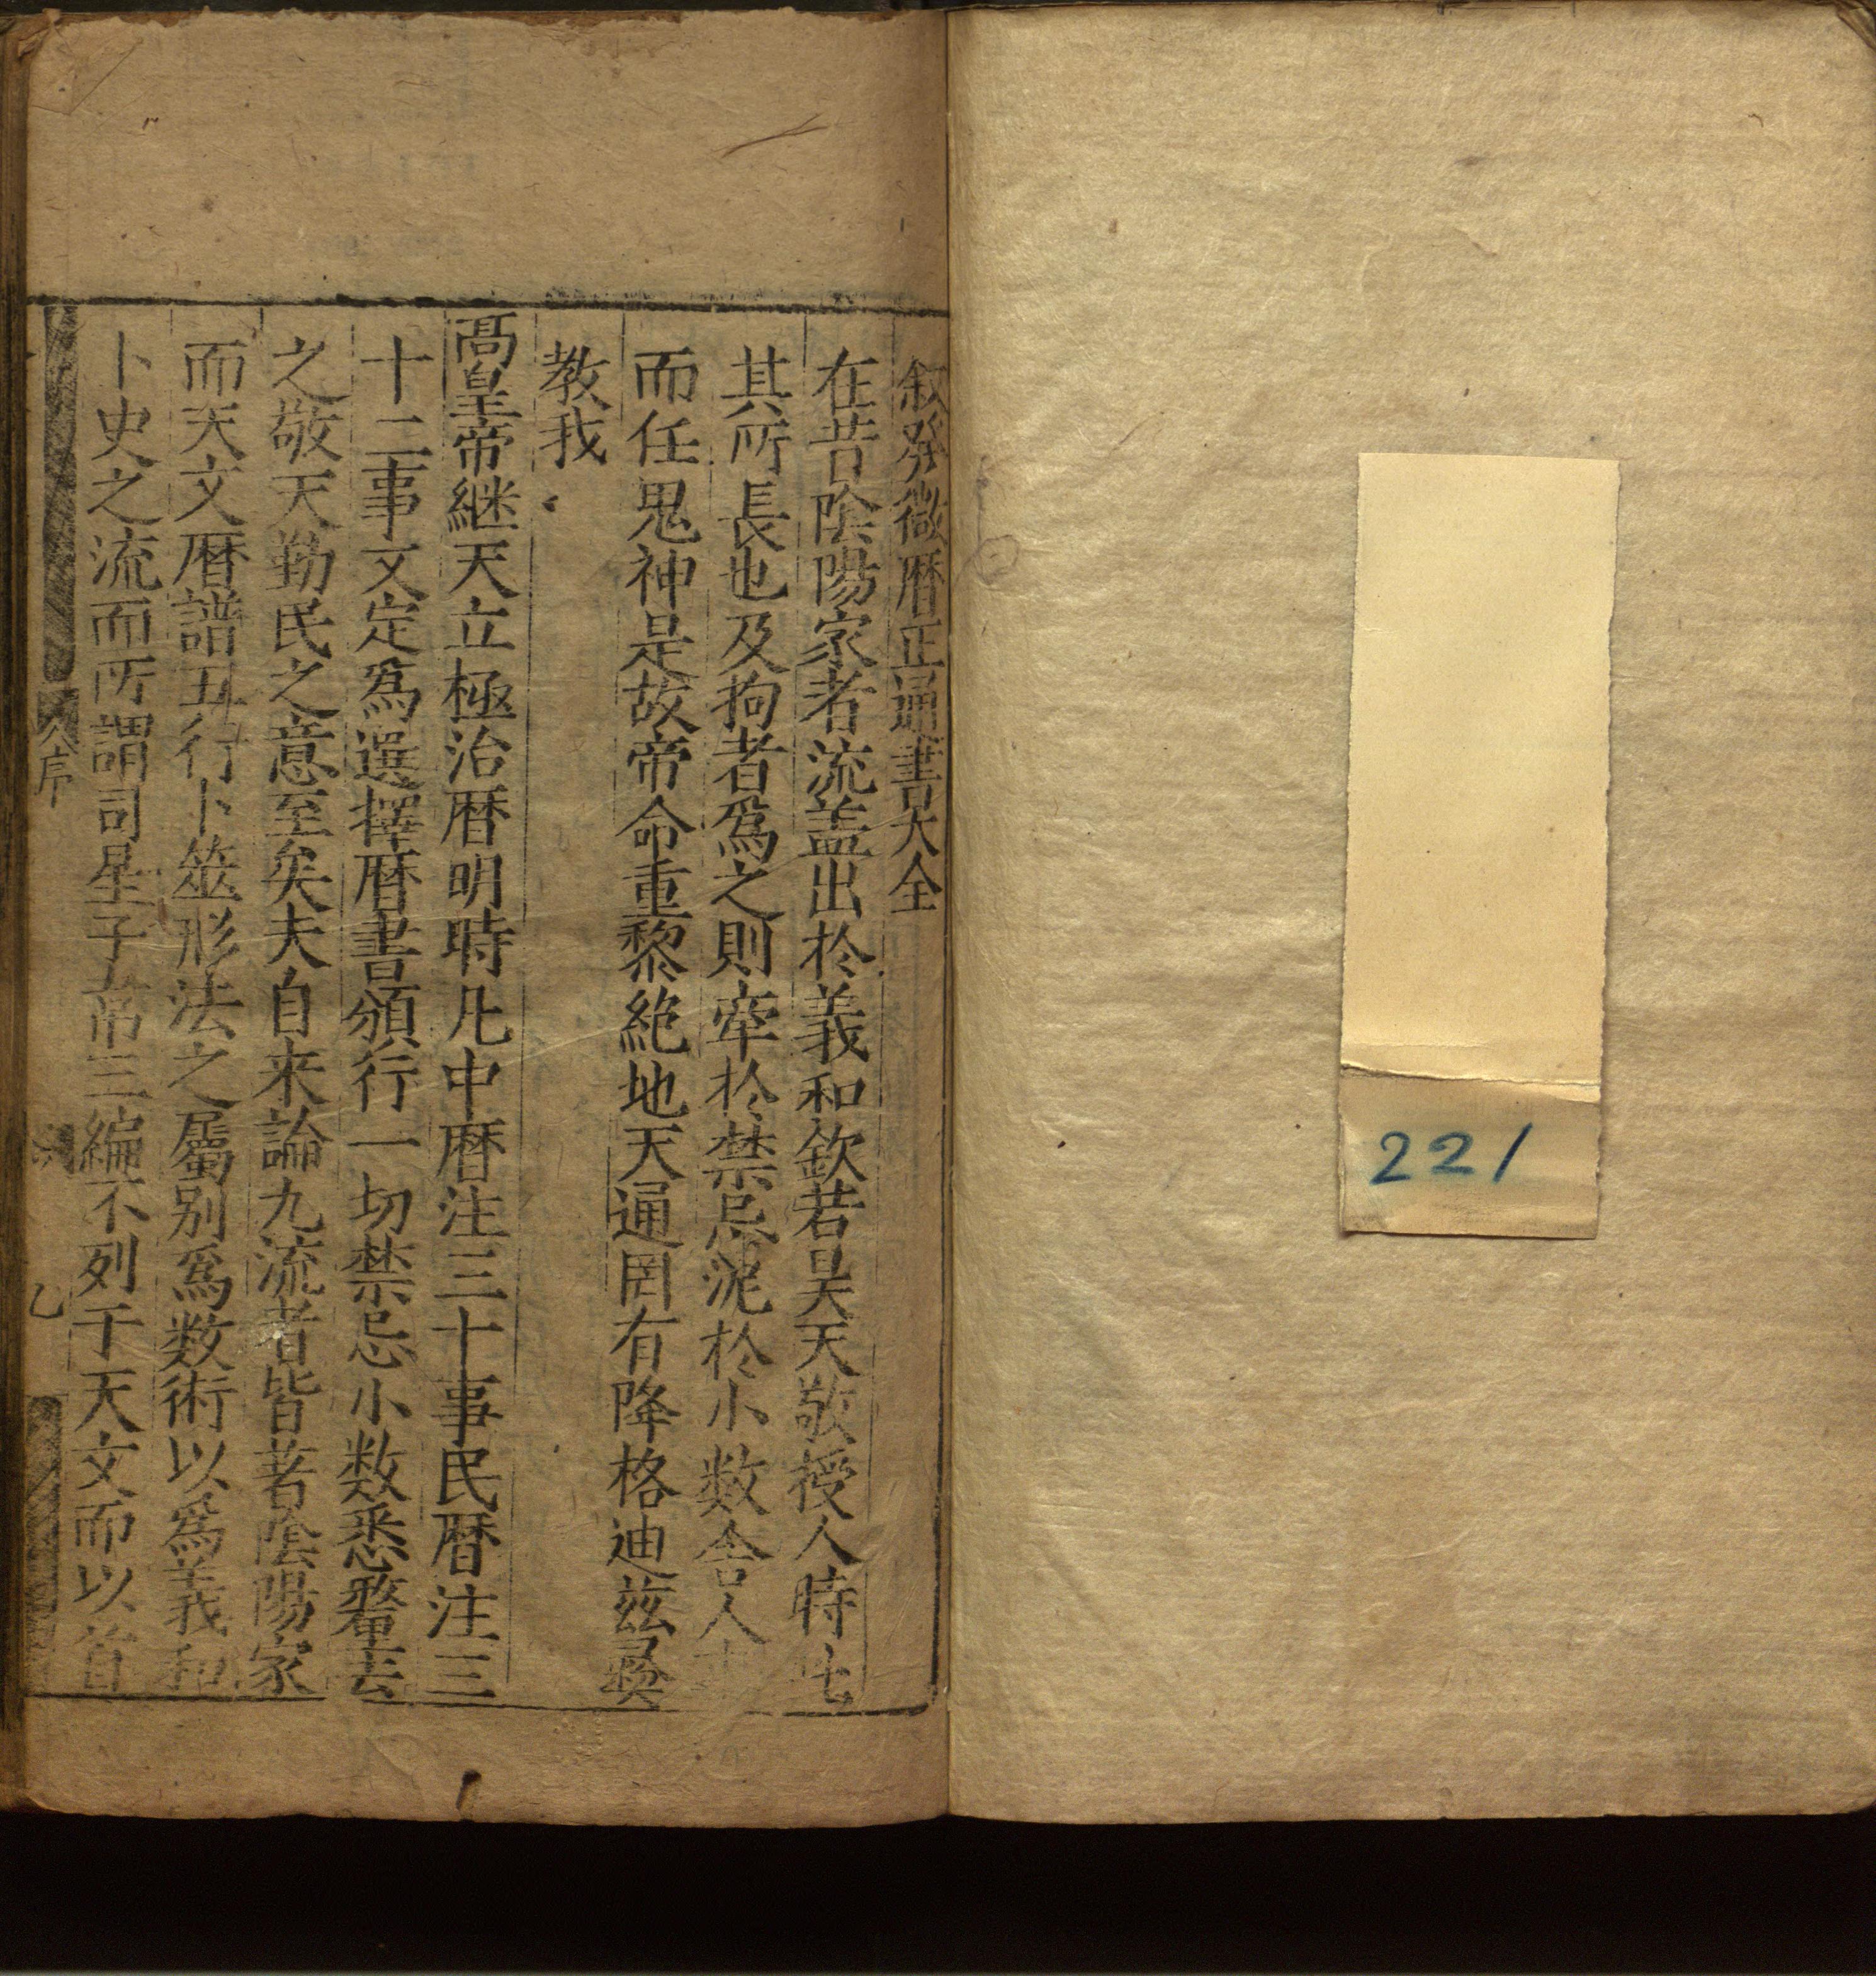 221
叙發微曆正通書大全
在昔陰陽家者流盖出於羲和欽若昊天敬授人時七
其所長也及拘者爲之則牽於禁忌泥於小数舎人
而任鬼神是故帝命重黎絶地天通罔有降格迪兹彛
教我
髙皇帝継天立極治曆明時凡中曆注三十事民曆注三
十二事又定爲選擇曆書頒行一切禁忌小数悉釐去
之敬天勤民之意至矣夫自来論九流者皆著陰陽家
而天文曆譜五行卜筮形法之屬别爲数術以爲羲和
卜史之流而所謂司星子常三編不列于天文而以首
序
乙